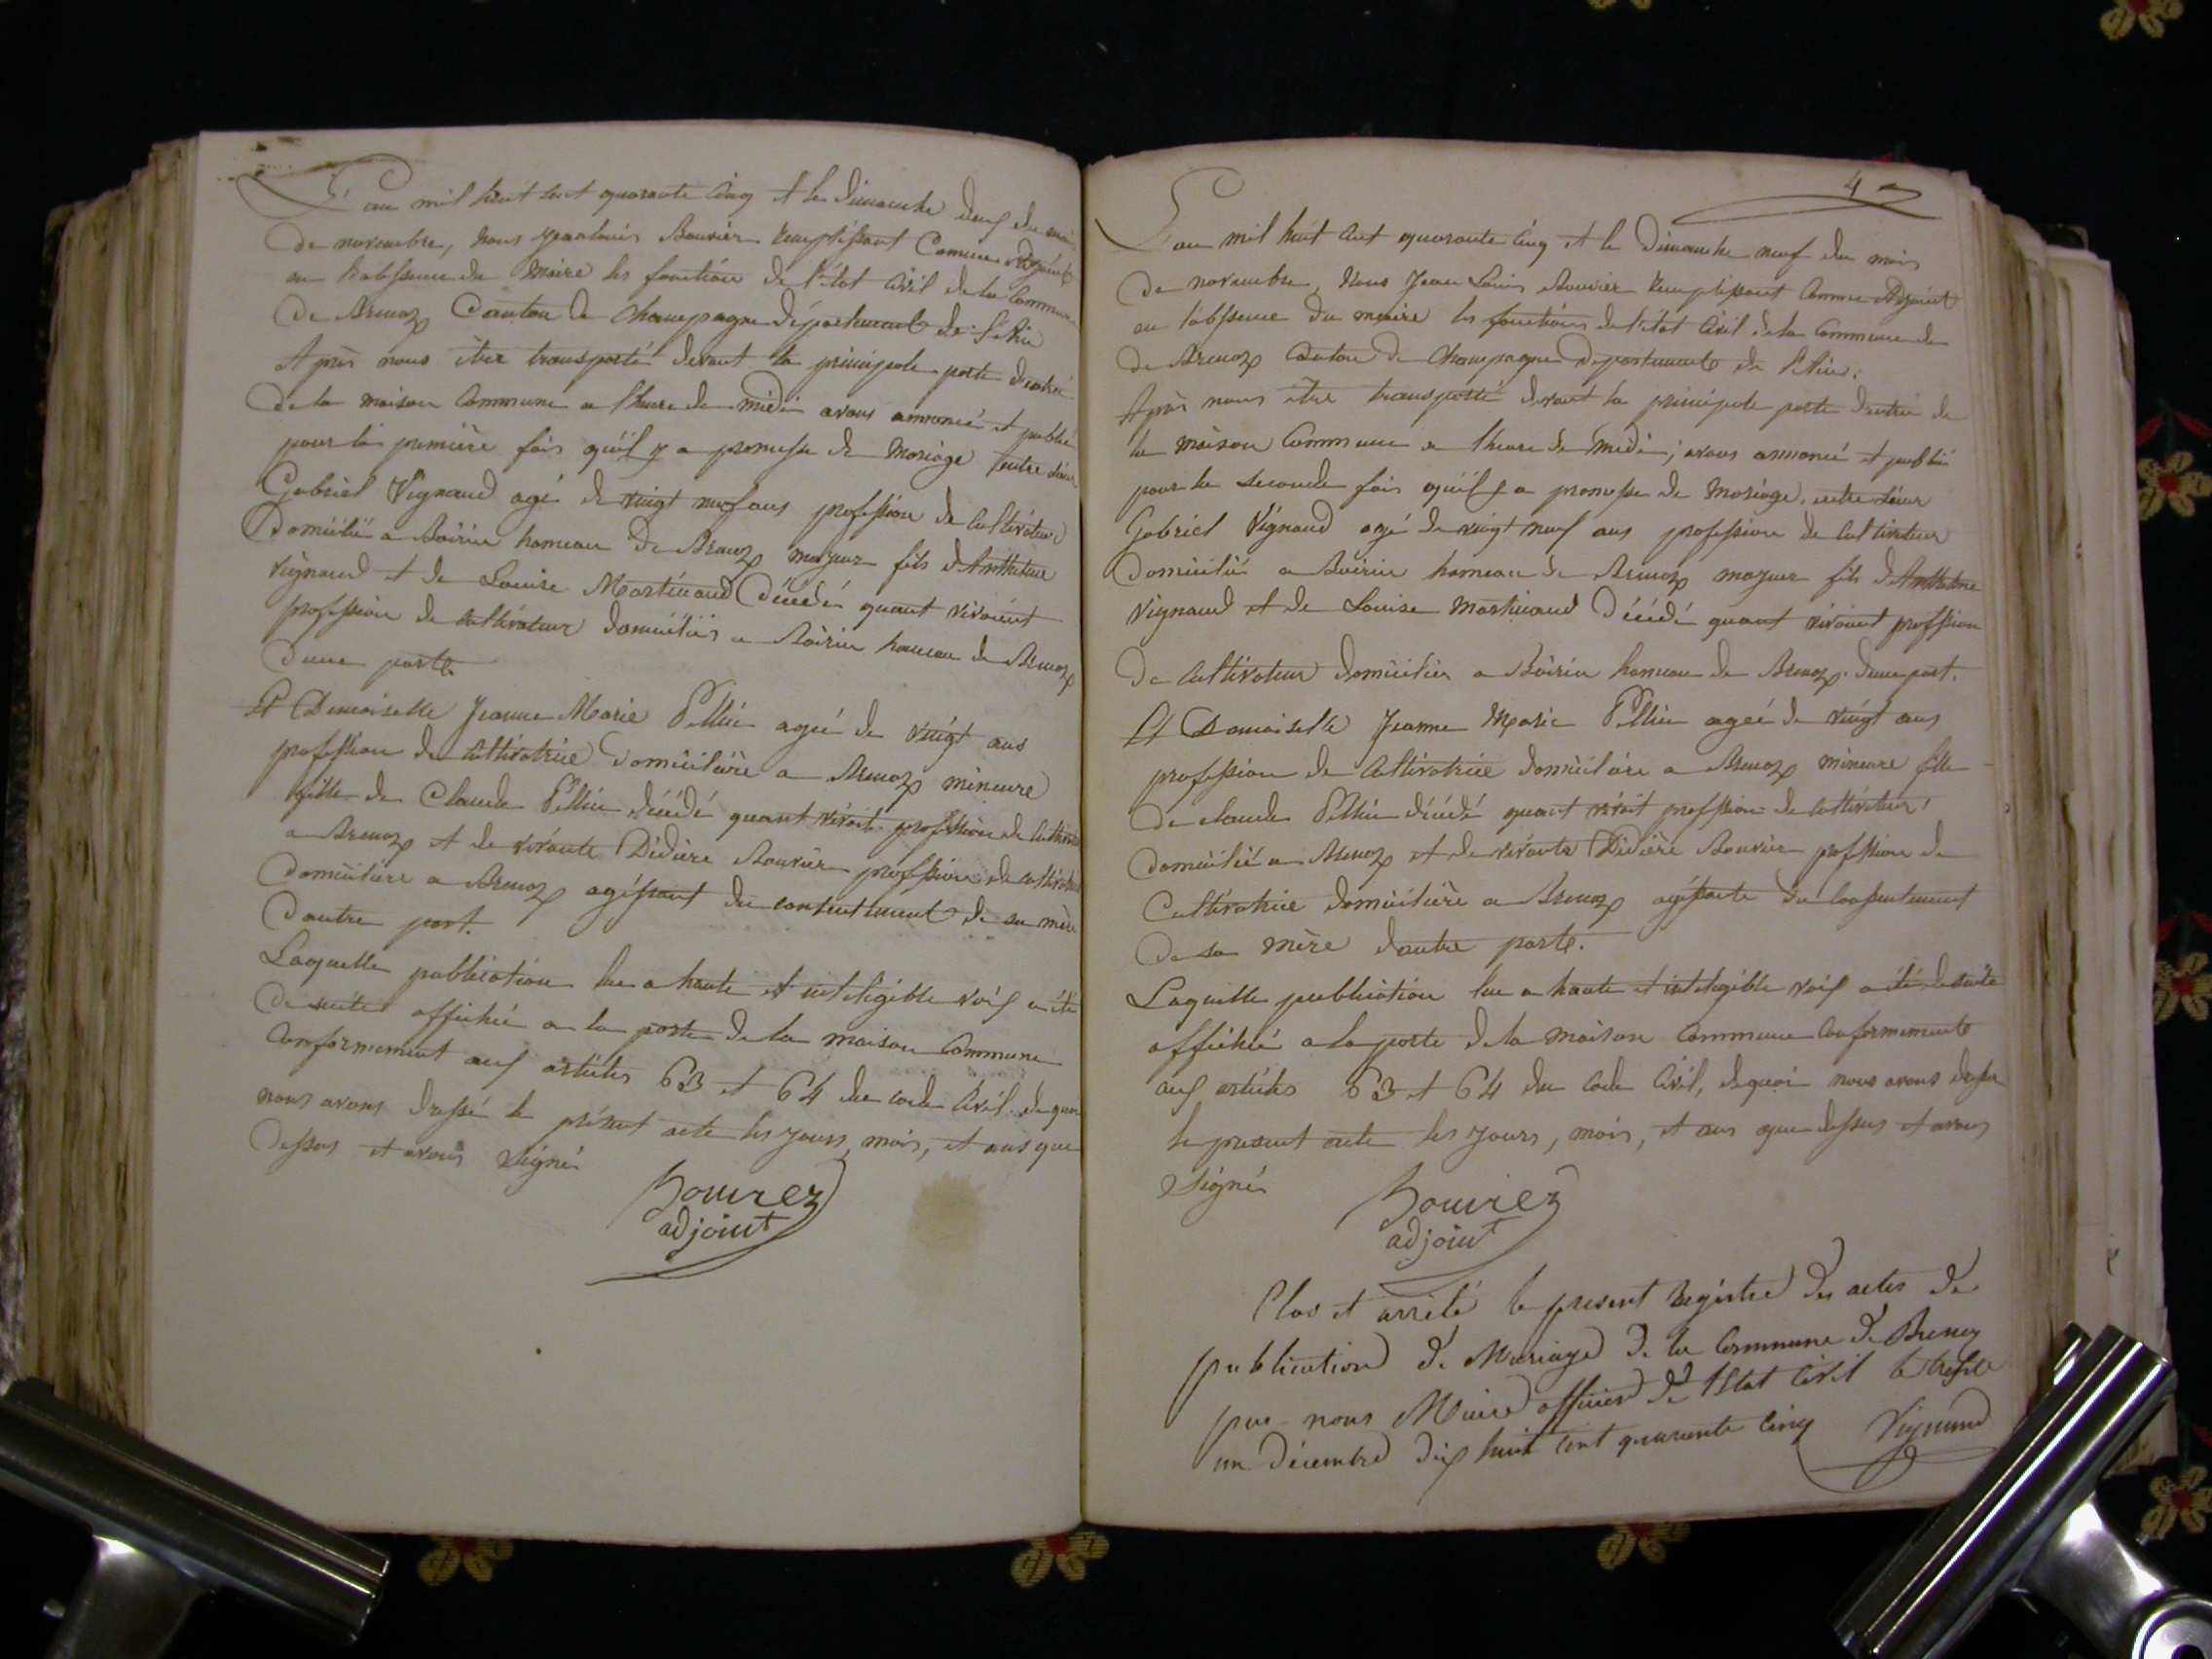 L'an mil huit cent quarante cinq et le dimanche deux du mois
de novembre, nous Jean louis Bouvier remplissant Comme Adjoint
en l'abssence du Maire les fonction de l'état Civil de la Commune
de Brenaz Canton de Champagne département de l'Ain
Après nous être transporté devant la principale porte d'entré
de la maison Commune a l'heure de midi avons annoncé et publié
pour la première fois qu'il y a promesse de Mariage entre sieur
Gabriel Vignaud agé de vingt neuf ans profession de Cultivateur
Domicilié a Boirin hameau de Brenaz majeur fils d'Anthelme
Vignaud et de Louise Martinaud Décédé quant vivoint
profession de Cultivateur domiciliés a Boirin hameau de Brenaz
d'une parte
Et Demoiselle Jeanne Marie Pellin agée de vingt ans
profession de Cultivatrice Domicilière a Brenaz mineure
fille de Claude Pellin décédé quant vivoit profession de Cultivateur
a Brenaz et de vivante Didière Bouvier profession de cultivatrice
domicilière a Brenaz agissant du consentement de sa mère
d'autre part.
Laquelle publication lue a haute et intelligible voix a été
de suite affichée a la porte de la maison Commune
Conformement aux articles 63 et 64 du code Civil. de quoi
nous avons dressé le présent acte les jours, mois, et ans que
dessus et avons signé
Bouvier
adjoint
4
L'an mil huit cent quarante cinq et le Dimanche neuf du mois
de novembre, Nous Jean Louis Bouvier remplissant Comme Adjoint
en l'abssence du maire les fonctions de l'état Civil de la Commune de
de Brenaz Canton de Champagne département de l'Ain.
Après nous être transporté devant la principale porte d'entrée de
la maison Commune a l'heure de midi; avons annoncé et publié
pour la seconde fois qu'il y a promesse de Mariage, entre sieur
Gabriel Vignaud agé de vingt neuf ans profession de Cultivateur
Domicilié a Boirin hameau de Brenaz majeur fils d'Anthelme
Vignaud et de Louise Martinaud Décédé quant vivoint profession
de Cultivateur domicilier a Boirin hameau de Brenaz. d'une part.
Et Demoiselle Jeanne Marie Pellin agée de vingt ans
profession de Cultivatrice domicilière a Brenaz mineure fille
de claude Pellin décédé quant vivoit profession de Cultivateur
domicilié a Brenaz et de vivante Didière Bouvier profession de
Cultivatrice domicilière a Brenaz agissante du Consentement
de sa mère d'autre parte.
Laquelle publication lue a haute et intelligible voix a été de suite
affichée a la porte de la maison Commune Conformement
aux articles 63 et 64 du code Civil, de quoi nous avons dressé
le present acte les jours, mois, et ans que dessus et avons
signé
Bouvier
adjoint
Clos et arrêté le present Registre des actes de
publication de Mariage de la Commune de Brenaz
par nous Maire officier de l'Etat Civil le trente
un Décembre dix huit cent quarante cinq Vignaud